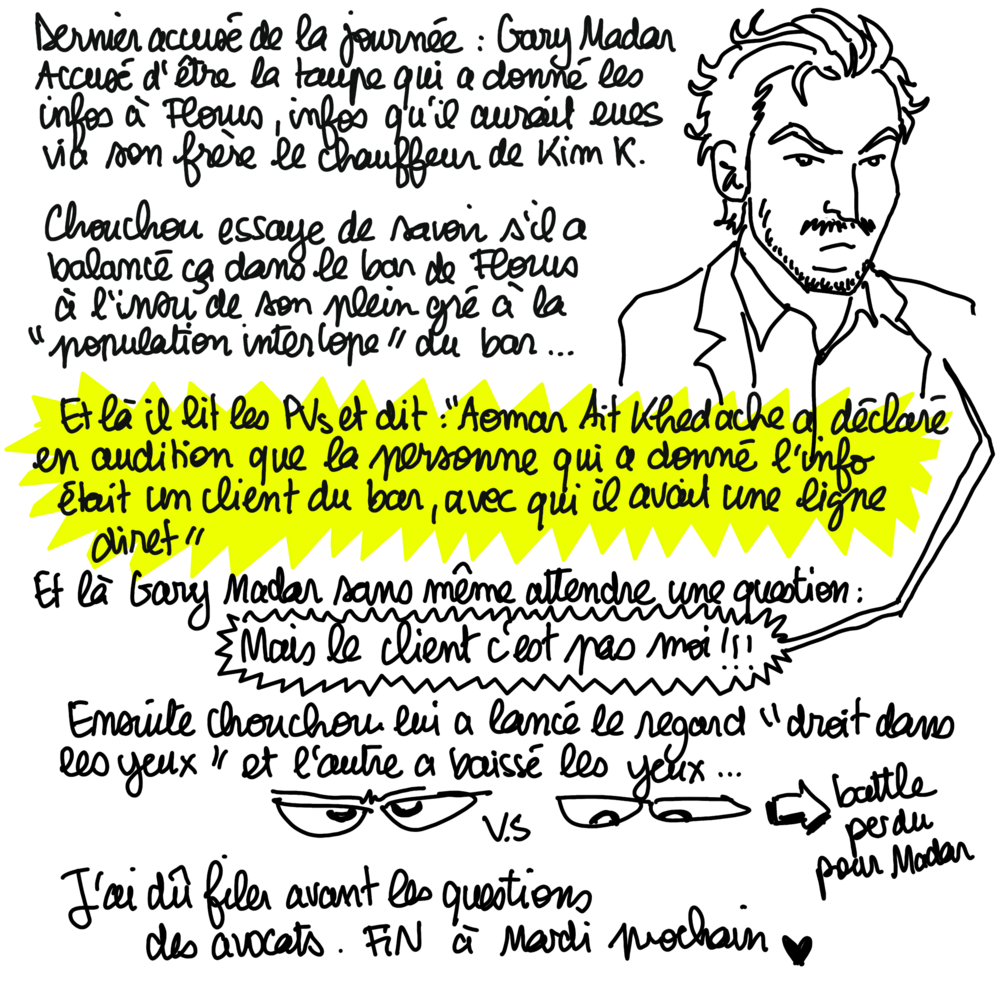 Dernier accusé de la journée : Gary Madar
Accusé d'être la taupe qui a donné les
infos à Florus, infos qu'il aurait eues
via son frère le chauffeur de Kim K.
Chouchou essaye de savoir s'il a
balancé ça dans le bar de Florus
à l'insu de son plein gré à la
"population interlope" du bar...
Et là il lit les PVs et dit : "Aomar Ait Khedache a déclaré
en audition que la personne qui a donné l'info
était un client du bar, avec qui il avait une ligne
diret"
Et là Gary Madar sans même attendre une question :
Mais le client c'est pas moi !!!
Ensuite chouchou lui a lancé le regard "droit dans
les yeux" et l'autre a baissé les yeux...
V.S
battle
perdu
pour Madar
J'ai dû filer avant les questions
des avocats. FiN à Mardi prochain ♥